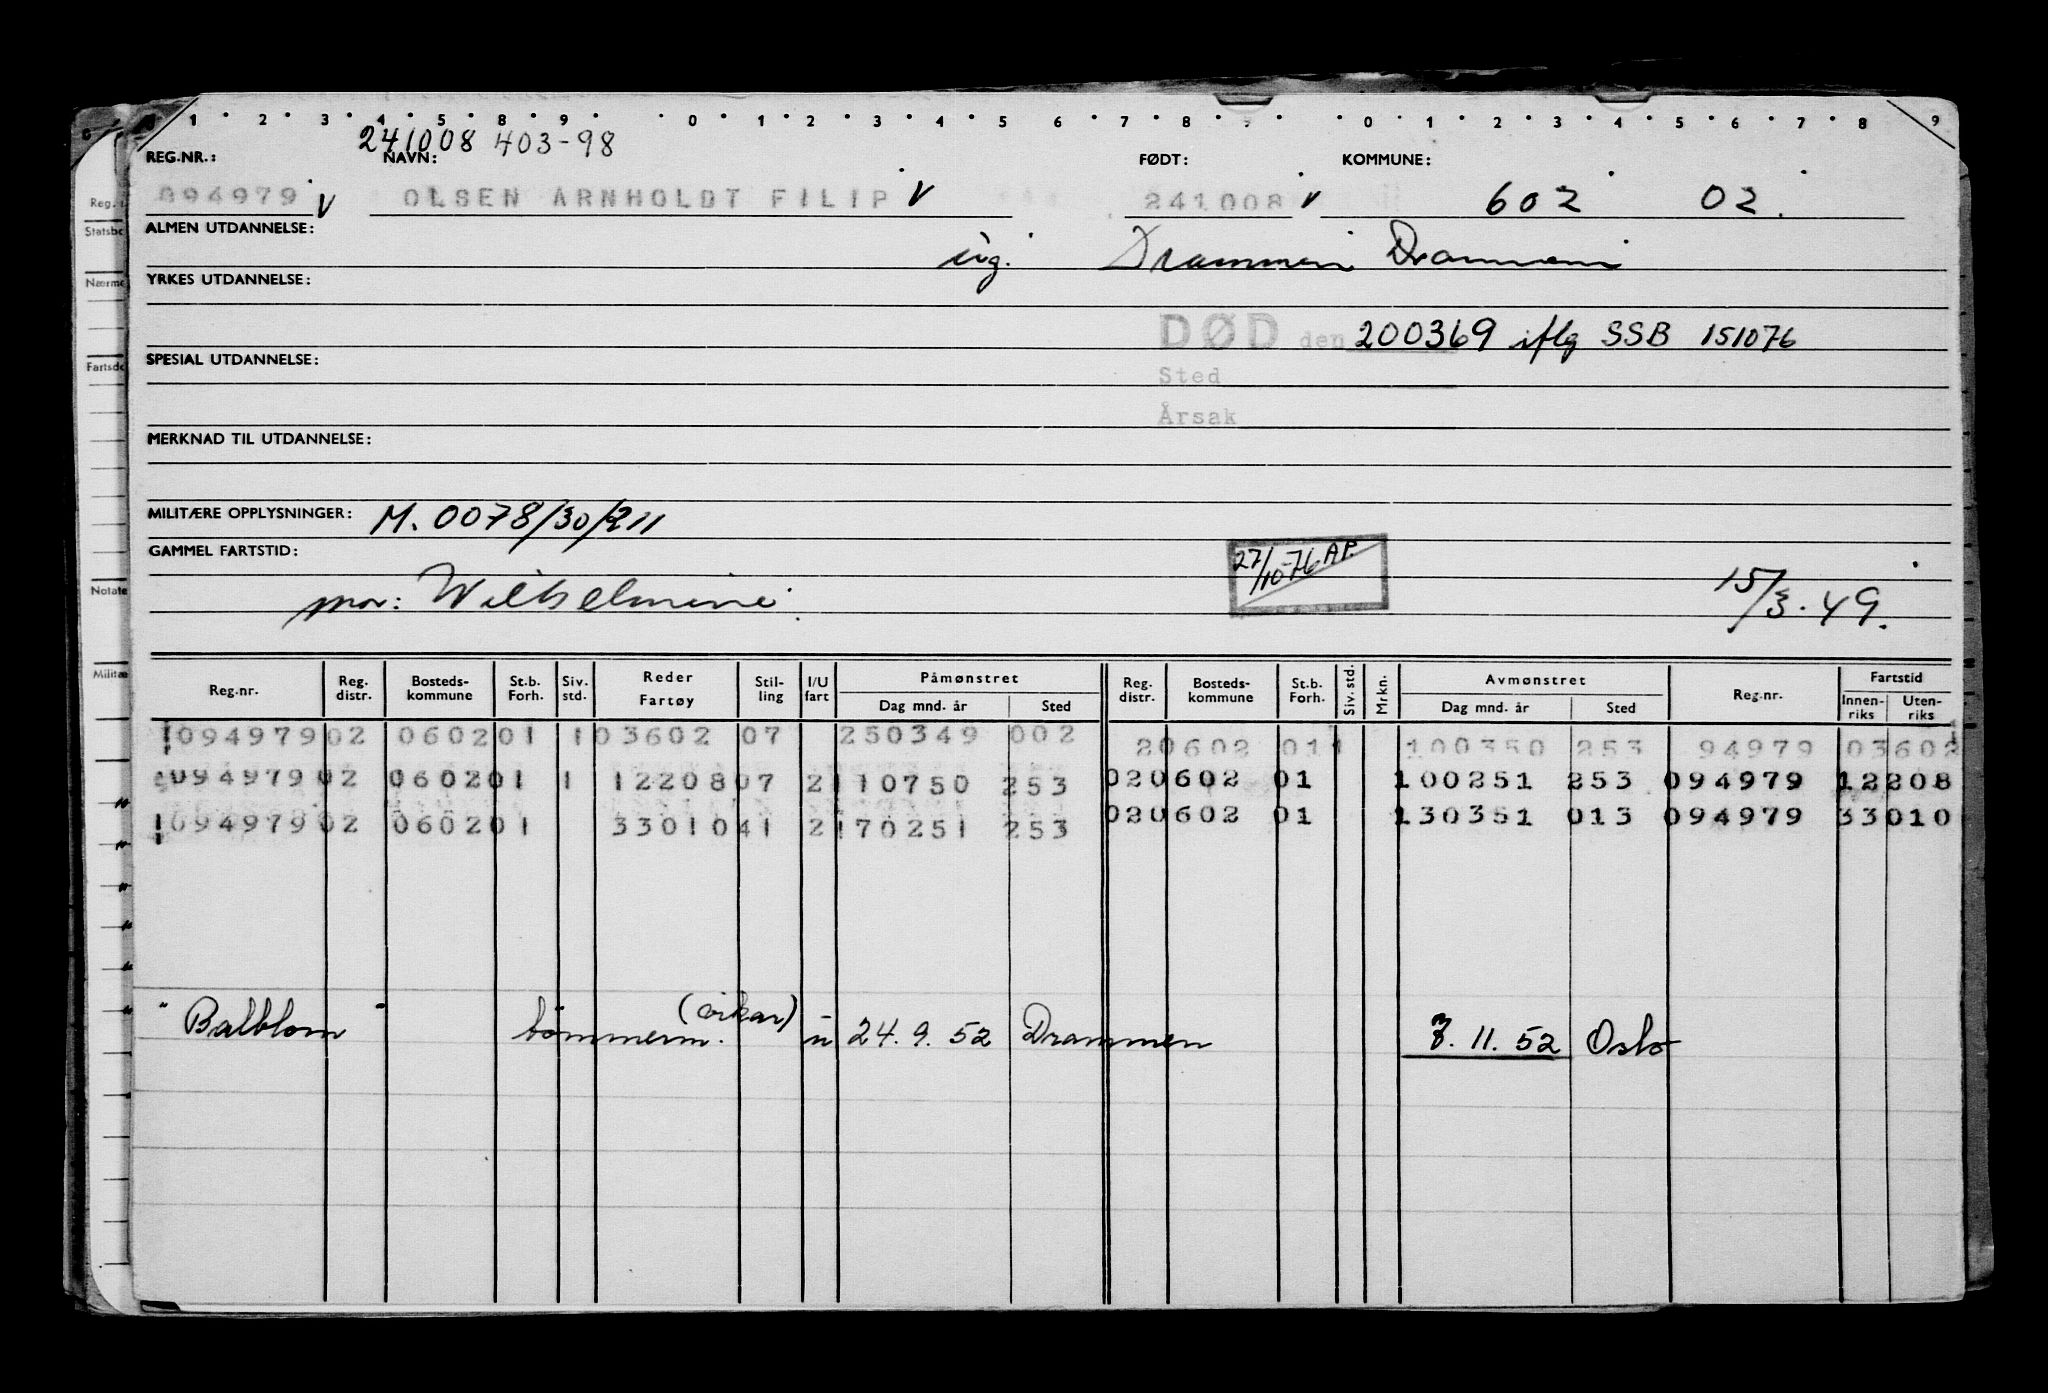 1 2 3 4 5 8 9 0 1 2 3 4 5 6 7 8 9 0 1 2 3 4 5 6 7 8 9
241008 403-98
REG.NR.: NAVN: FØDT: KOMMUNE:
094979 V OLSEN ARNHOLDT FILIP V 241008 V 602 02.
ALMEN UTDANNELSE:
ug. Drammen Drammen
YRKES UTDANNELSE:
DØD den 200369 iflg SSB 151076
SPESIAL UTDANNELSE:
Sted
Årsak
MERKNAD TIL UTDANNELSE:
MILITÆRE OPPLYSNINGER: M. 0078/30/211
GAMMEL FARTSTID:
27/10-76 AP.
mor: Wilhelmine. 15/3.49.
Reg.nr. Reg. distr. Bosteds-kommune St.b. Forh. Siv. std. Reder Fartøy Stil-ling I/U fart Påmønstret Dag mnd. år Sted Reg. distr. Bosteds-kommune St.b. Forh. Siv. std. Mrkn. Avmønstret Dag mnd. år Sted Reg.nr. Fartstid Innen-riks Uten-riks
094979 02 0602 01 1 03602 07 250349 002 20602 011 100350 253 94979 03602
094979 02 0602 01 1 12208 07 2 110750 253 02 0602 01 100251 253 094979 12208
094979 02 0602 01 33010 41 2 170251 253 02 0602 01 130351 013 094979 33010
"Balblom" tømmerm. (vikar) u 24. 9. 52 Drammen 7. 11. 52 Oslo